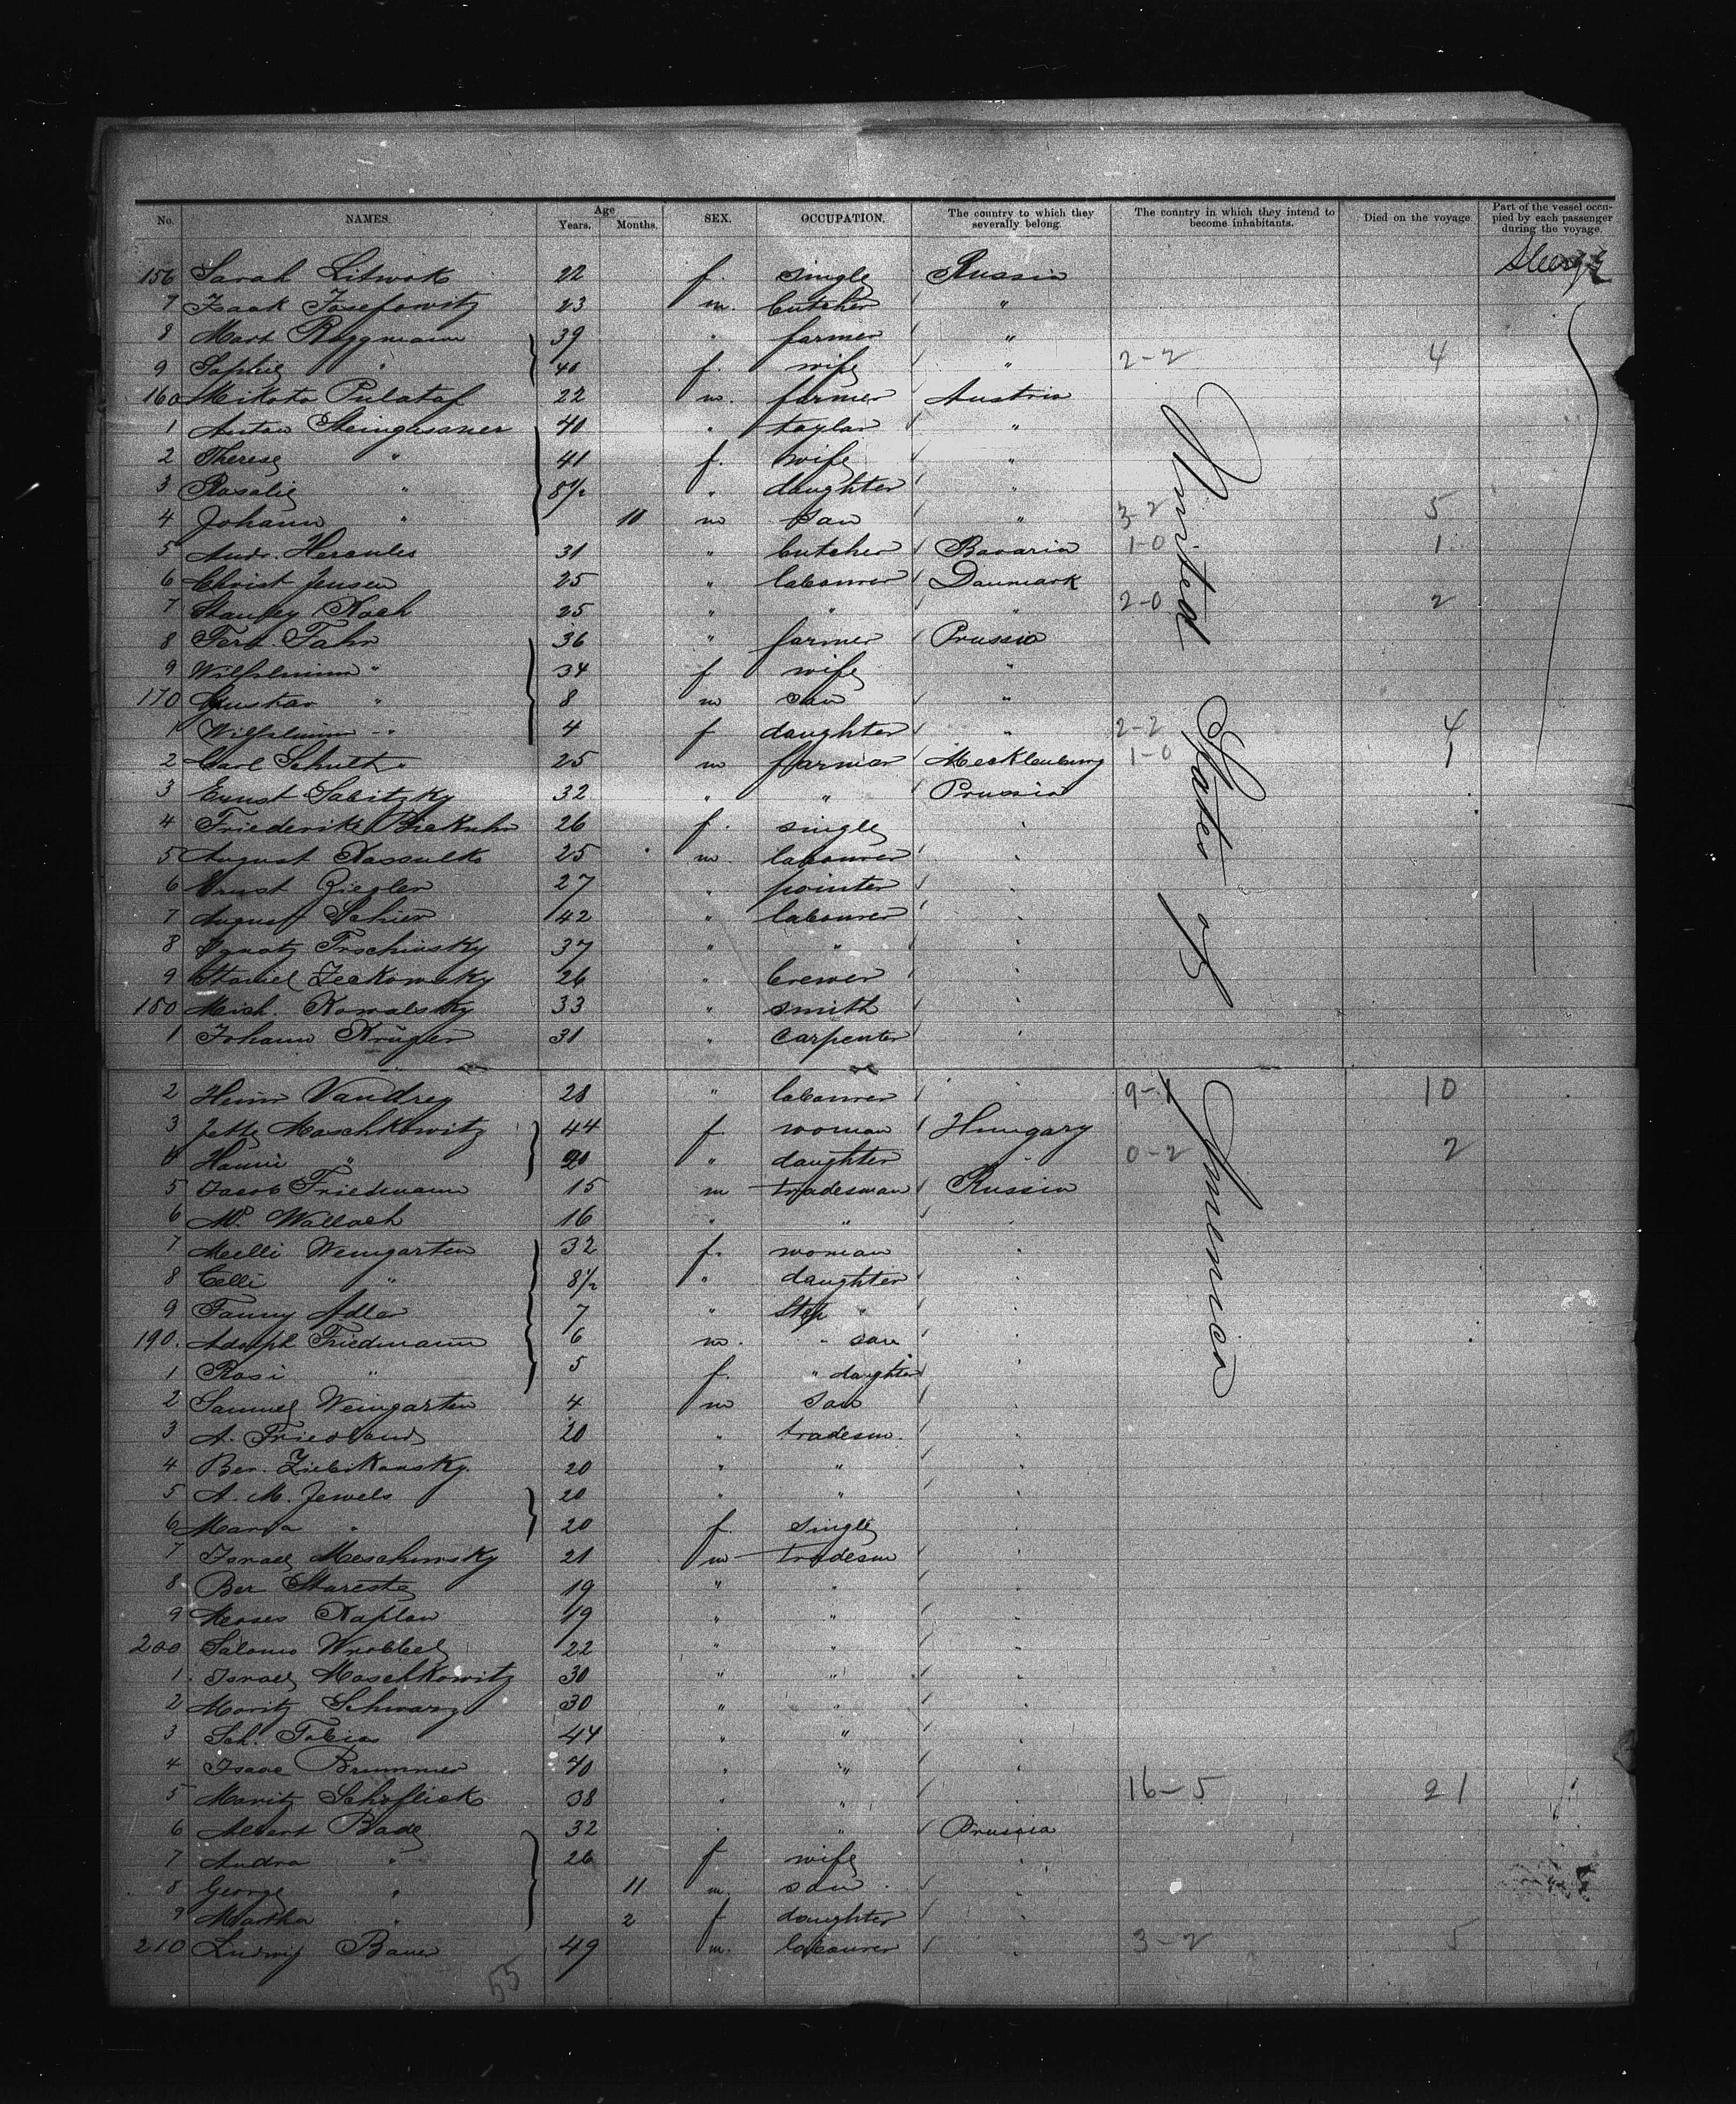 No. NAMES. Age Years. Months. SEX. OCCUPATION. The country to which they severally belong. The country in which they intend to become inhabitants. Died on the voyage. Part of the vessel occupied by each passenger during the voyage.
156 Sarah Litwok 22 f. single Russia
7 Isaak Josefowitz 23 m. butcher "
8 Mart 39 " farmer "
9 Sophie " 40 f. wife " 2-2 4
160 Mikota Pulataf 22 m. farmer Austria
1 Anton 40 " taylor "
2 Therese " 41 f. wife "
3 Rosalie " 8½ " daughter "
4 Johann " 10 m son " 3-2 5
5 Andr. Hercules 31 " butcher Bavaria 1-0 1
6 Christ Jensen 25 " labourer Danmark
7 Stanley Koch 25 " " " 2-0 2
8 Ferd. Fahr 36 " farmer Prussia
9 Wilhelmine " 34 f wife "
170 Gustav " 8 m son "
1 Wilhelmine " 4 f daughter " 2-2 4
2 Carl Schultz 25 m farmer Mecklenburg 1-0 1
3 Ernst Sabitzky 32 " " Prussia
4 Friederike 26 f. single "
5 August Kassulke 25 m. labourer "
6 Ernst Ziegler 27 " pointer "
7 August Schier 42 " labourer "
8 Ignatz 37 " " "
9 26 " brewer "
180 Mich. Kowalsky 33 " smith "
1 Johann Krüger 31 " carpenter "
2 Heinr Vandrey 28 " labourer " 9-1 10
3 Jette Maschkowitz 44 f. woman Hungary
4 Hanni " 20 " daughter " 0-2 2
5 Jacob Friedmann 15 m tradesman Russia
6 M. Wallach 16 " " "
7 Melli Weingarten 32 f. woman "
8 Celli " 8½ " daughter "
9 Fanny Adler 7 " Step " "
190. Adolph Friedmann 6 m. " son "
1 Rosi " 5 f. " daughter "
2 Samuel Weingarten 4 m son "
3 A. Friedland 20 " tradesm. "
4 Ber. 20 " " "
5 A. M. Jewels 20 " " "
6 Maria " 20 f. single "
7 Israel 21 m tradesm "
8 Ber 19 " " "
9 Moses Kaplan 19 " " "
200 Salomo Wrobbel 22 " " "
1 Israel Maschkowitz 30 " " "
2 Moritz Schwarz 30 " " "
3 Sch. Tobias 44 " " "
4 Isaac Brummer 40 " " "
5 Moritz 38 " " " 16-5 21
6 Albert Bade 32 " " Prussia
7 Andra " 26 f wife "
8 George " 11 m. son "
9 Martha " 2 f daughter "
210 Ludwig Bauer 49 m. labourer " 3-2 5
55
United States of America